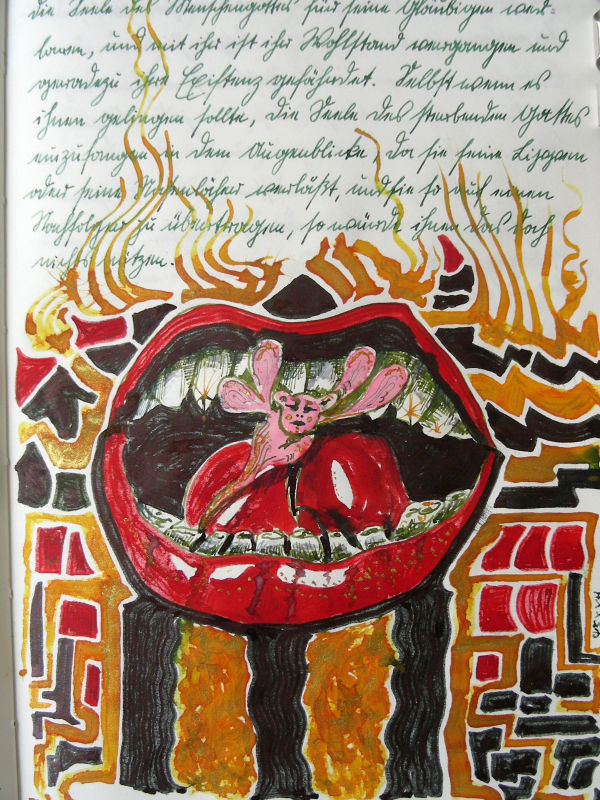 die Seele des Menschengottes für seine Gläubigen ver-
loren, und mit ihr ist ihr Wohlstand vergangen und
geradezu ihre Existenz gefährdet. Selbst wenn es
ihnen gelingen sollte, die Seele des sterbenden Gottes
einzufangen in dem Augenblicke, da sie seine Lippen
oder seine Nasenlöcher verläßt, und sie so auf einen
Nachfolger zu übertragen, so würde ihnen das doch
nichts nützen.